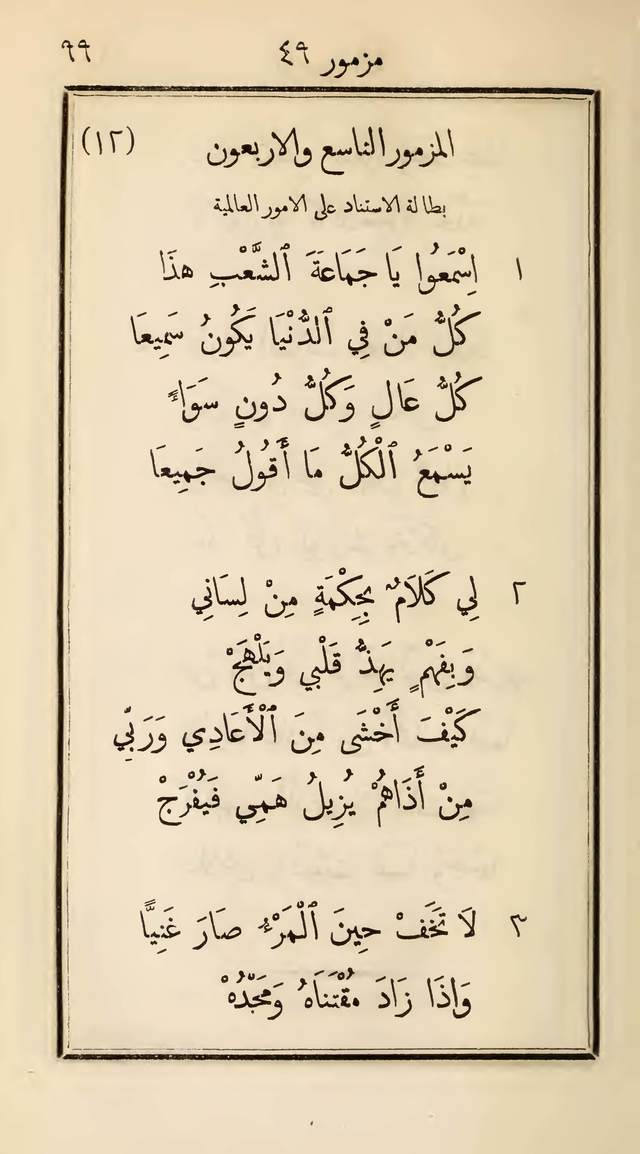 مزمور ٤٩ ٦٩
المزمور التاسع والاربعون (١٢)
بطالة الاستناد على الامور العالمية
١ اِسْمَعُوا يَا جَمَاعَةَ ٱلشَّعْبِ هذَا
كُلُّ مَنْ فِي ٱلدُّنْيَا يَكُونُ سَمِيعَا
كُلُّ عَالٍ وَكُلُّ دُونٍ سَوَاءً
يَسْمَعُ ٱلْكُلُّ مَا أَقُولُ جَمِيعَا
٢ لِي كَلَامٌ بِحِكْمَةٍ مِنْ لِسَانِي
وَبِفَهْمٍ يَهِذُّ قَلْبِي وَيَلْهَجْ
كَيْفَ أَخْشَى مِنَ ٱلْأَعَادِي وَرَبِّي
مِنْ أَذَاهُمْ يُزِيلُ هَمِّي فَيُفْرَجْ
٣ لَا تَخَفْ حِينَ ٱلْمَرْءُ صَارَ غَنِيًّا
وَإِذَا زَادَ مُقْتَنَاهُ وَمَجْدُهْ